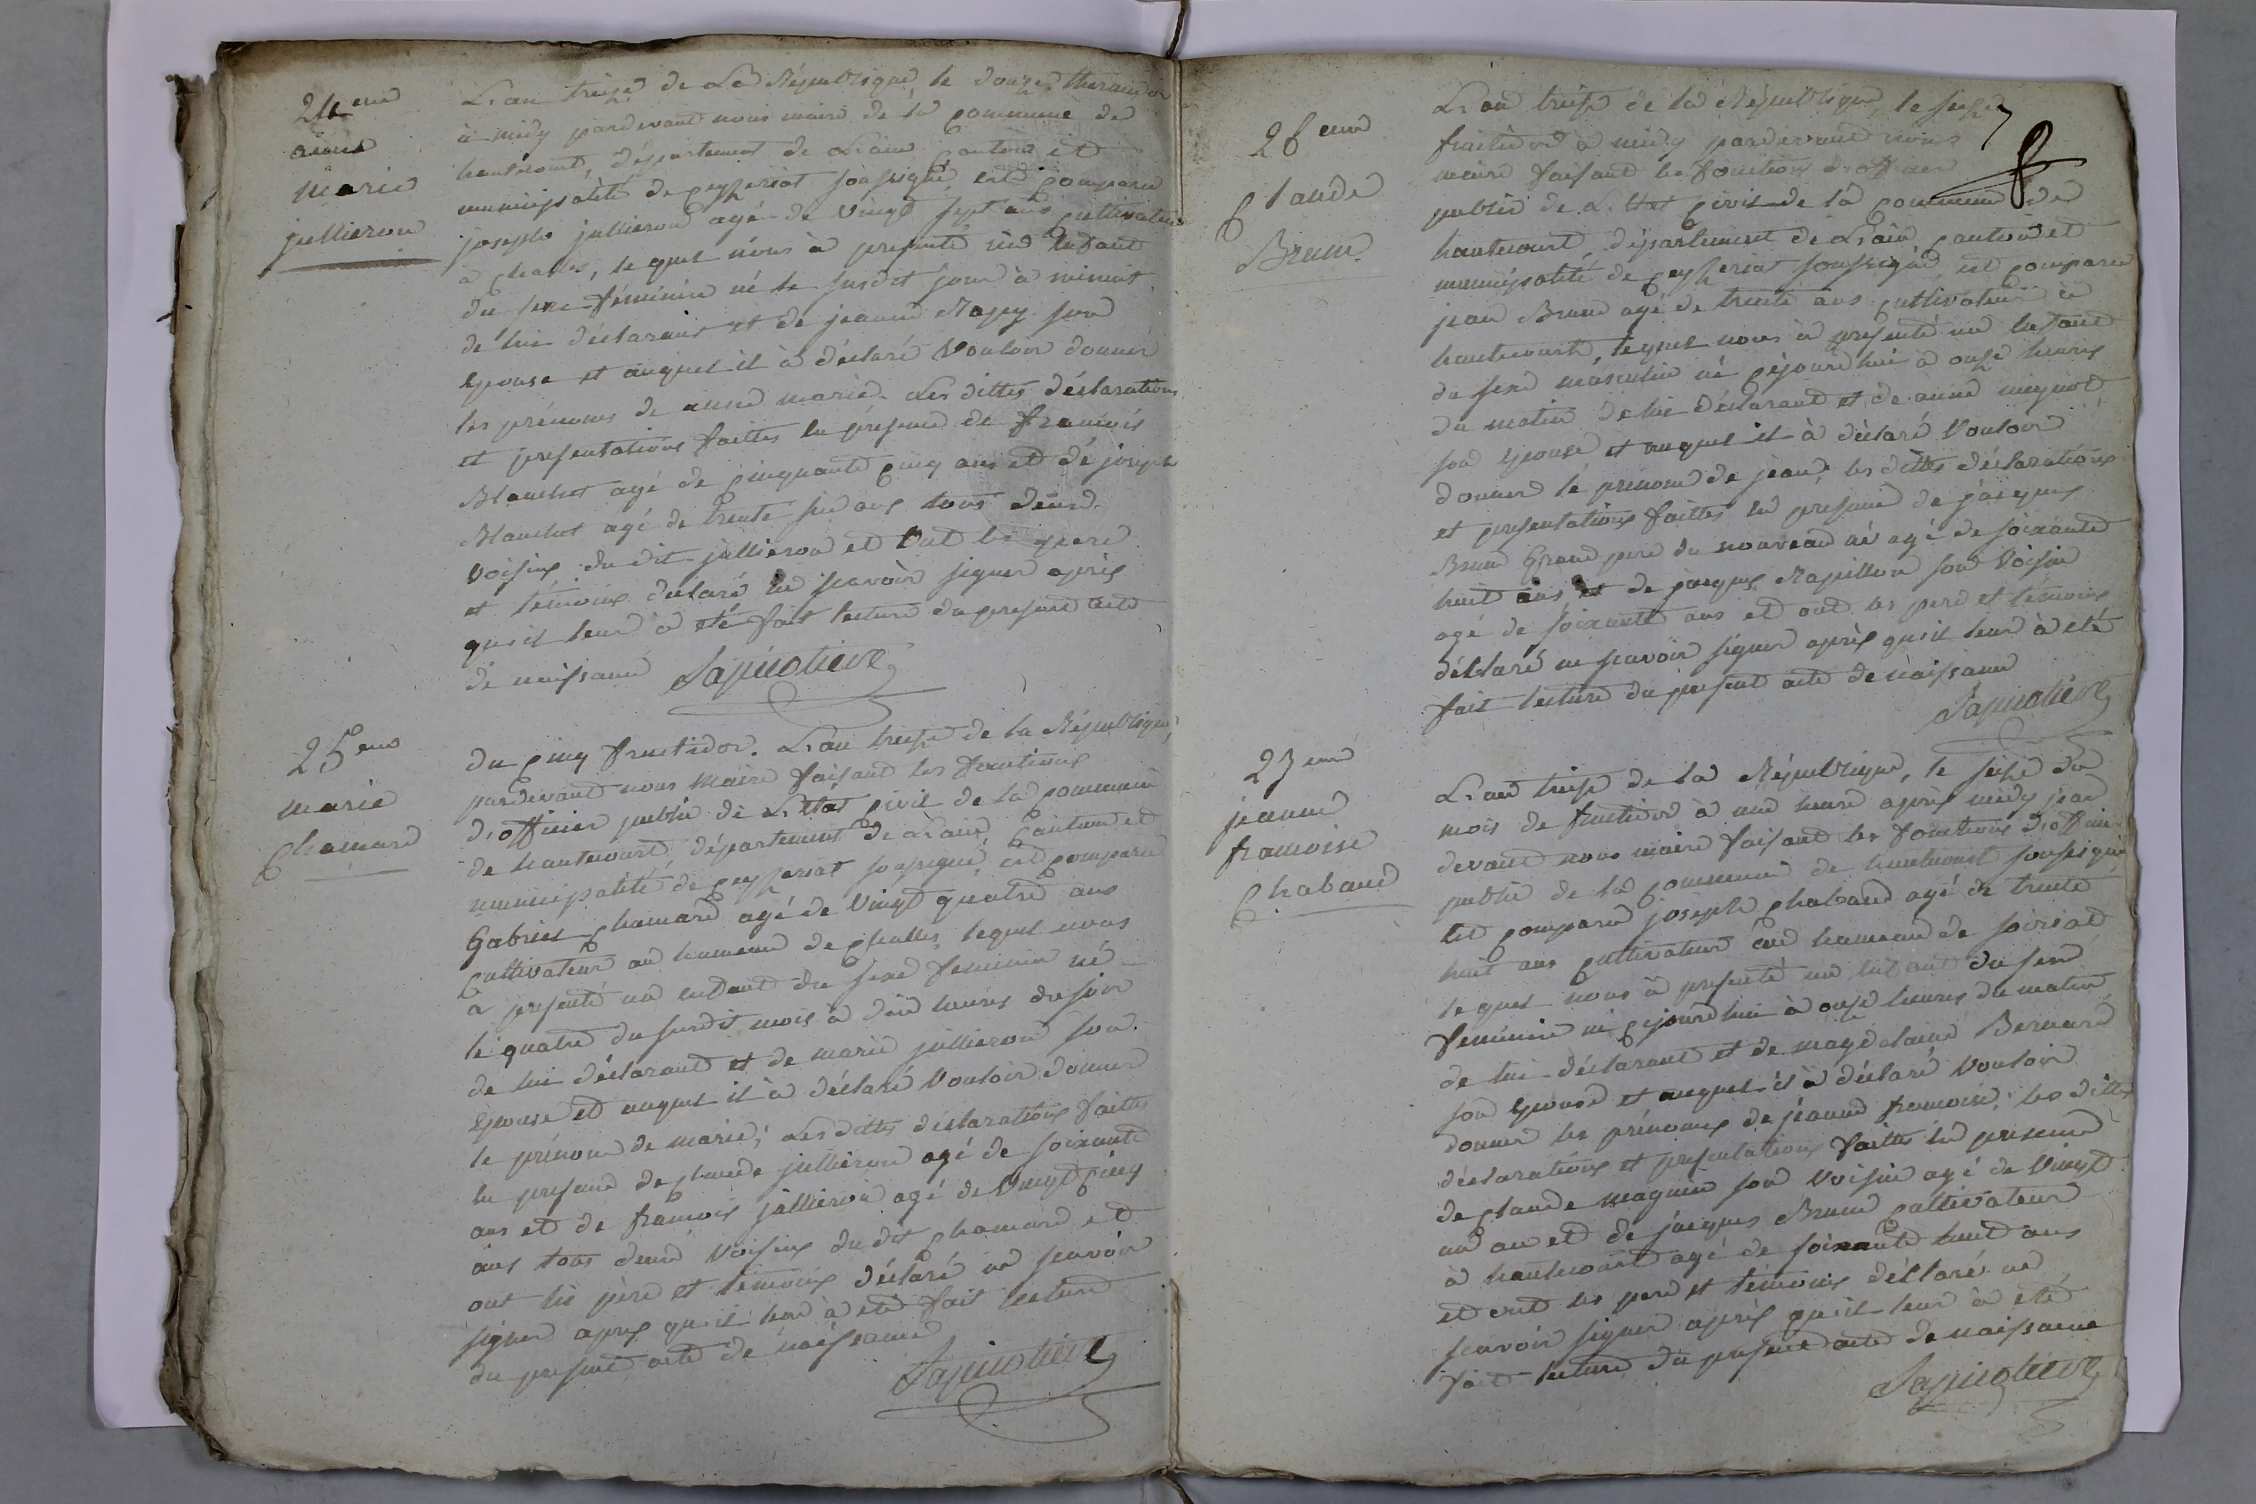 24eme
anne
marie
jullieron
L'an treize de La République, le douze thermidor
à midy pardevant nous maire de la commune de
hautecourt, département de L'ain Canton et
municipalité de Ceyzeriat soussigné, est comparu
joseph jullieron agé de vingt sept ans cultivateur
à Challes, lequel nous à presenté un Enfant
du sexe féminin né le susdit jour à minuit
de lui déclarant et de jeanne Rapy son
Epouse et auquel il à déclaré Vouloir donner
les prénoms de anne marie. Les dittes déclarations
et presentations faittes en présence de françois
Blanchet agé de cinquante cinq ans et de joseph
Blanchet agé de trente six ans tous deux
Voisins du dit jullieron et Ont le pere
et témoins declaré ne scavoir signer après
qu'il leur à été fait lecture du present acte
de naissance
25eme
marie
Chamard
du cinq fructidor. L'an treize de la République,
pardevant nous maire faisant les fonctions
d'officier public de L'Etat civil de la commune
de hautecourt, département de L'ain, Canton et
municipalité de Ceyzeriat soussigné, est comparu
Gabriel Chamard agé de Vingt quatre ans
Cultivateur au hameau de Challes, lequel nous
a presenté un enfant du sexe feminin né
le quatre du susdit mois à dix heures du soir
de lui déclarant et de marie jullieron son
Epouse et auquel il à déclaré Vouloir donner
le prénom de marie; Les dittes déclarations faittes
en presence de claude jullieron agé de soixante
ans et de françois jullieron agé de Vingt Cinq
ans tous deux Voisins du dit chamard et
ont les père et témoins déclaré ne scavoir
signer après qu'il leur à été fait lecture
du present acte de naissance
26eme
Claude
Brun
L'an treize de la République, le seize
fructidor à midy pardevant nous
maire faisant les fonctions d'officier
public de L'Etat civil de la commune de
hautecourt, département de L'ain, canton et
municipalité de Ceyzeriat soussigné, est comparu
jean Brun agé de trente ans cultivateur à
hautecourt, lequel nous à presenté un Enfant
du sexe masculin né cejourd'hui à onze heures
du matin de lui déclarant et de anne mignot
son Epouse et auquel il à déclaré Vouloir
donner le prenom de jean; les dittes déclarations
et presentations faittes en presence de jacques
Brun Grand pere du nouveau né agé de soixante
huit ans et de jacques Rapillon son Voisin
agé de soixante ans et ont les pere et témoins
déclaré ne scavoir signer après qu'il leur à été
fait lecture du present acte de naissance
27eme
jeanne
francoise
Chaband
L'an treize de la République, le seize du
mois de fructidor à une heure après midy par
devant nous maire faisant les fonctions d'officier
public de la commune de hautecourt soussigné
Est comparu joseph chaband agé de trente
huit ans cultivateur au hameau de soiriat
lequel nous à presenté un Enfant du sexe
feminin né cejourd'hui à onze heures du matin
de lui déclarant et de magdelaine Bernard
son Epouse et auquel il à déclaré Vouloir
donner les prénoms de jeanne francoise; les dittes
déclarations et presentations faittes en presence
de claude magnin son Voisin agé de Vingt
un an et de jacques Brun cultivateur
à hautecourt agé de soixante huit ans
et ont les pere et témoins déclaré ne
scavoir signer après qu'il leur à été
fait lecture du present acte de naissance